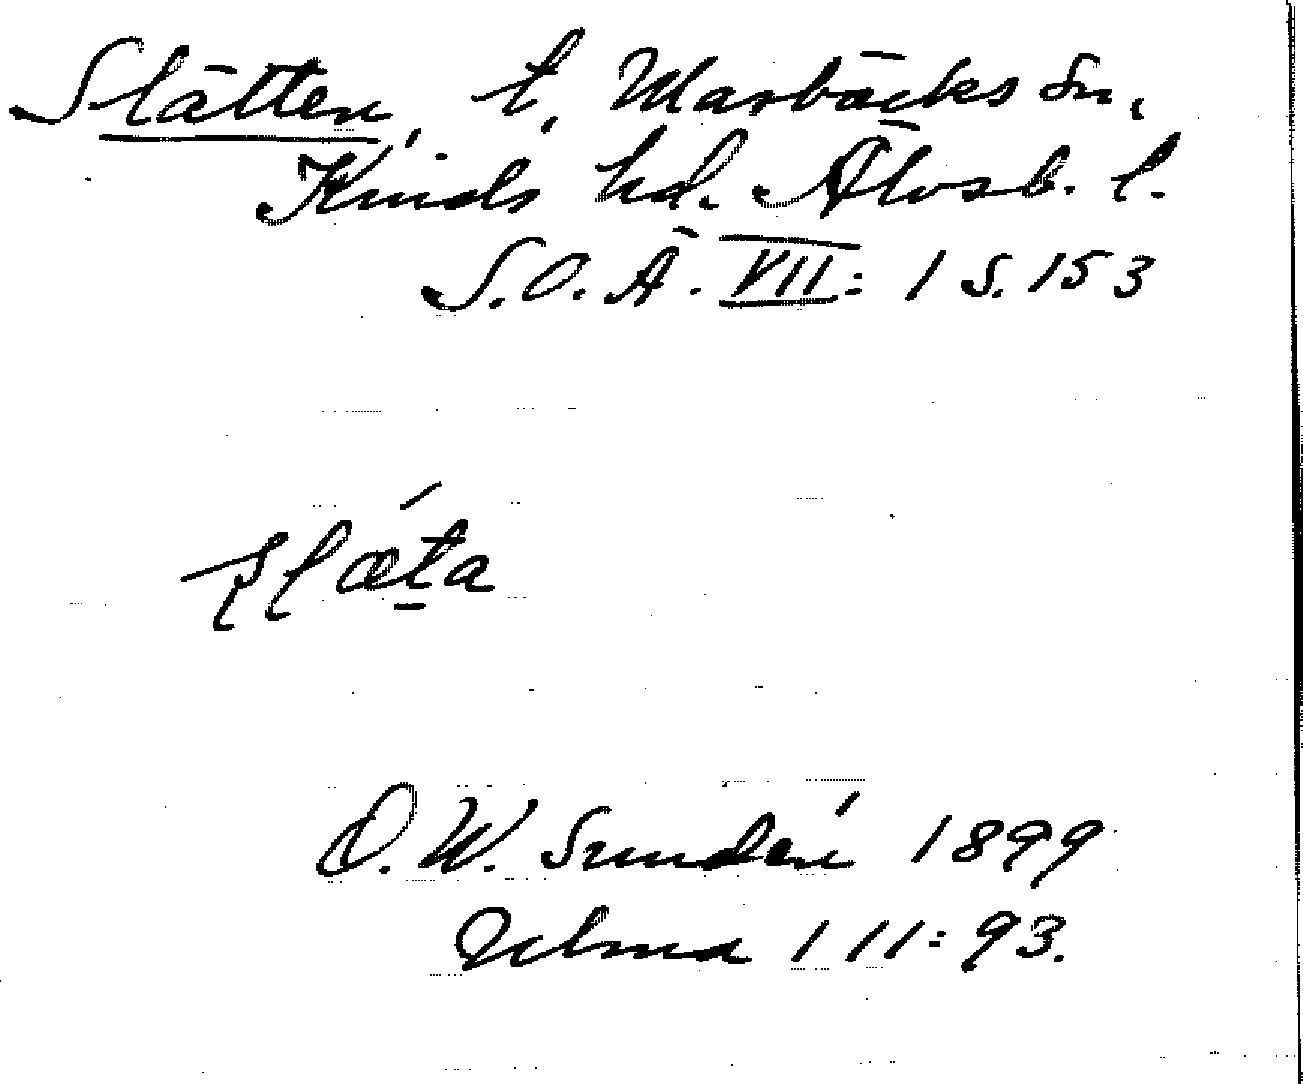 Slätten, t, Marbäcks sn,
Kinds hd. Älvsb. l.
S.O.Ä. VII: 1 S. 153
slǽta
O. W. Sundén 1899
Ulma 111:93.